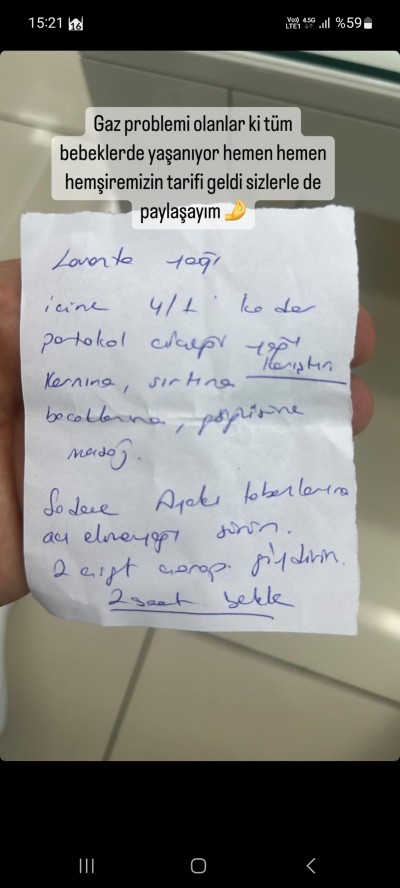 15:21
Vo)) 4.5G
LTE1
%59
Gaz problemi olanlar ki tüm
bebeklerde yaşanıyor hemen hemen
hemşiremizin tarifi geldi sizlerle de
paylaşayım
Lavanta yağı
içine 4/1 kadar
portakal çiçeği yağı
Karıştır
Karnına, sırtına
bacaklarına, popisine
masaj.
Sadece Ayak tabanlarına
acı elmayağı sürün.
2 çift çorap giydirin.
2 saat bekle